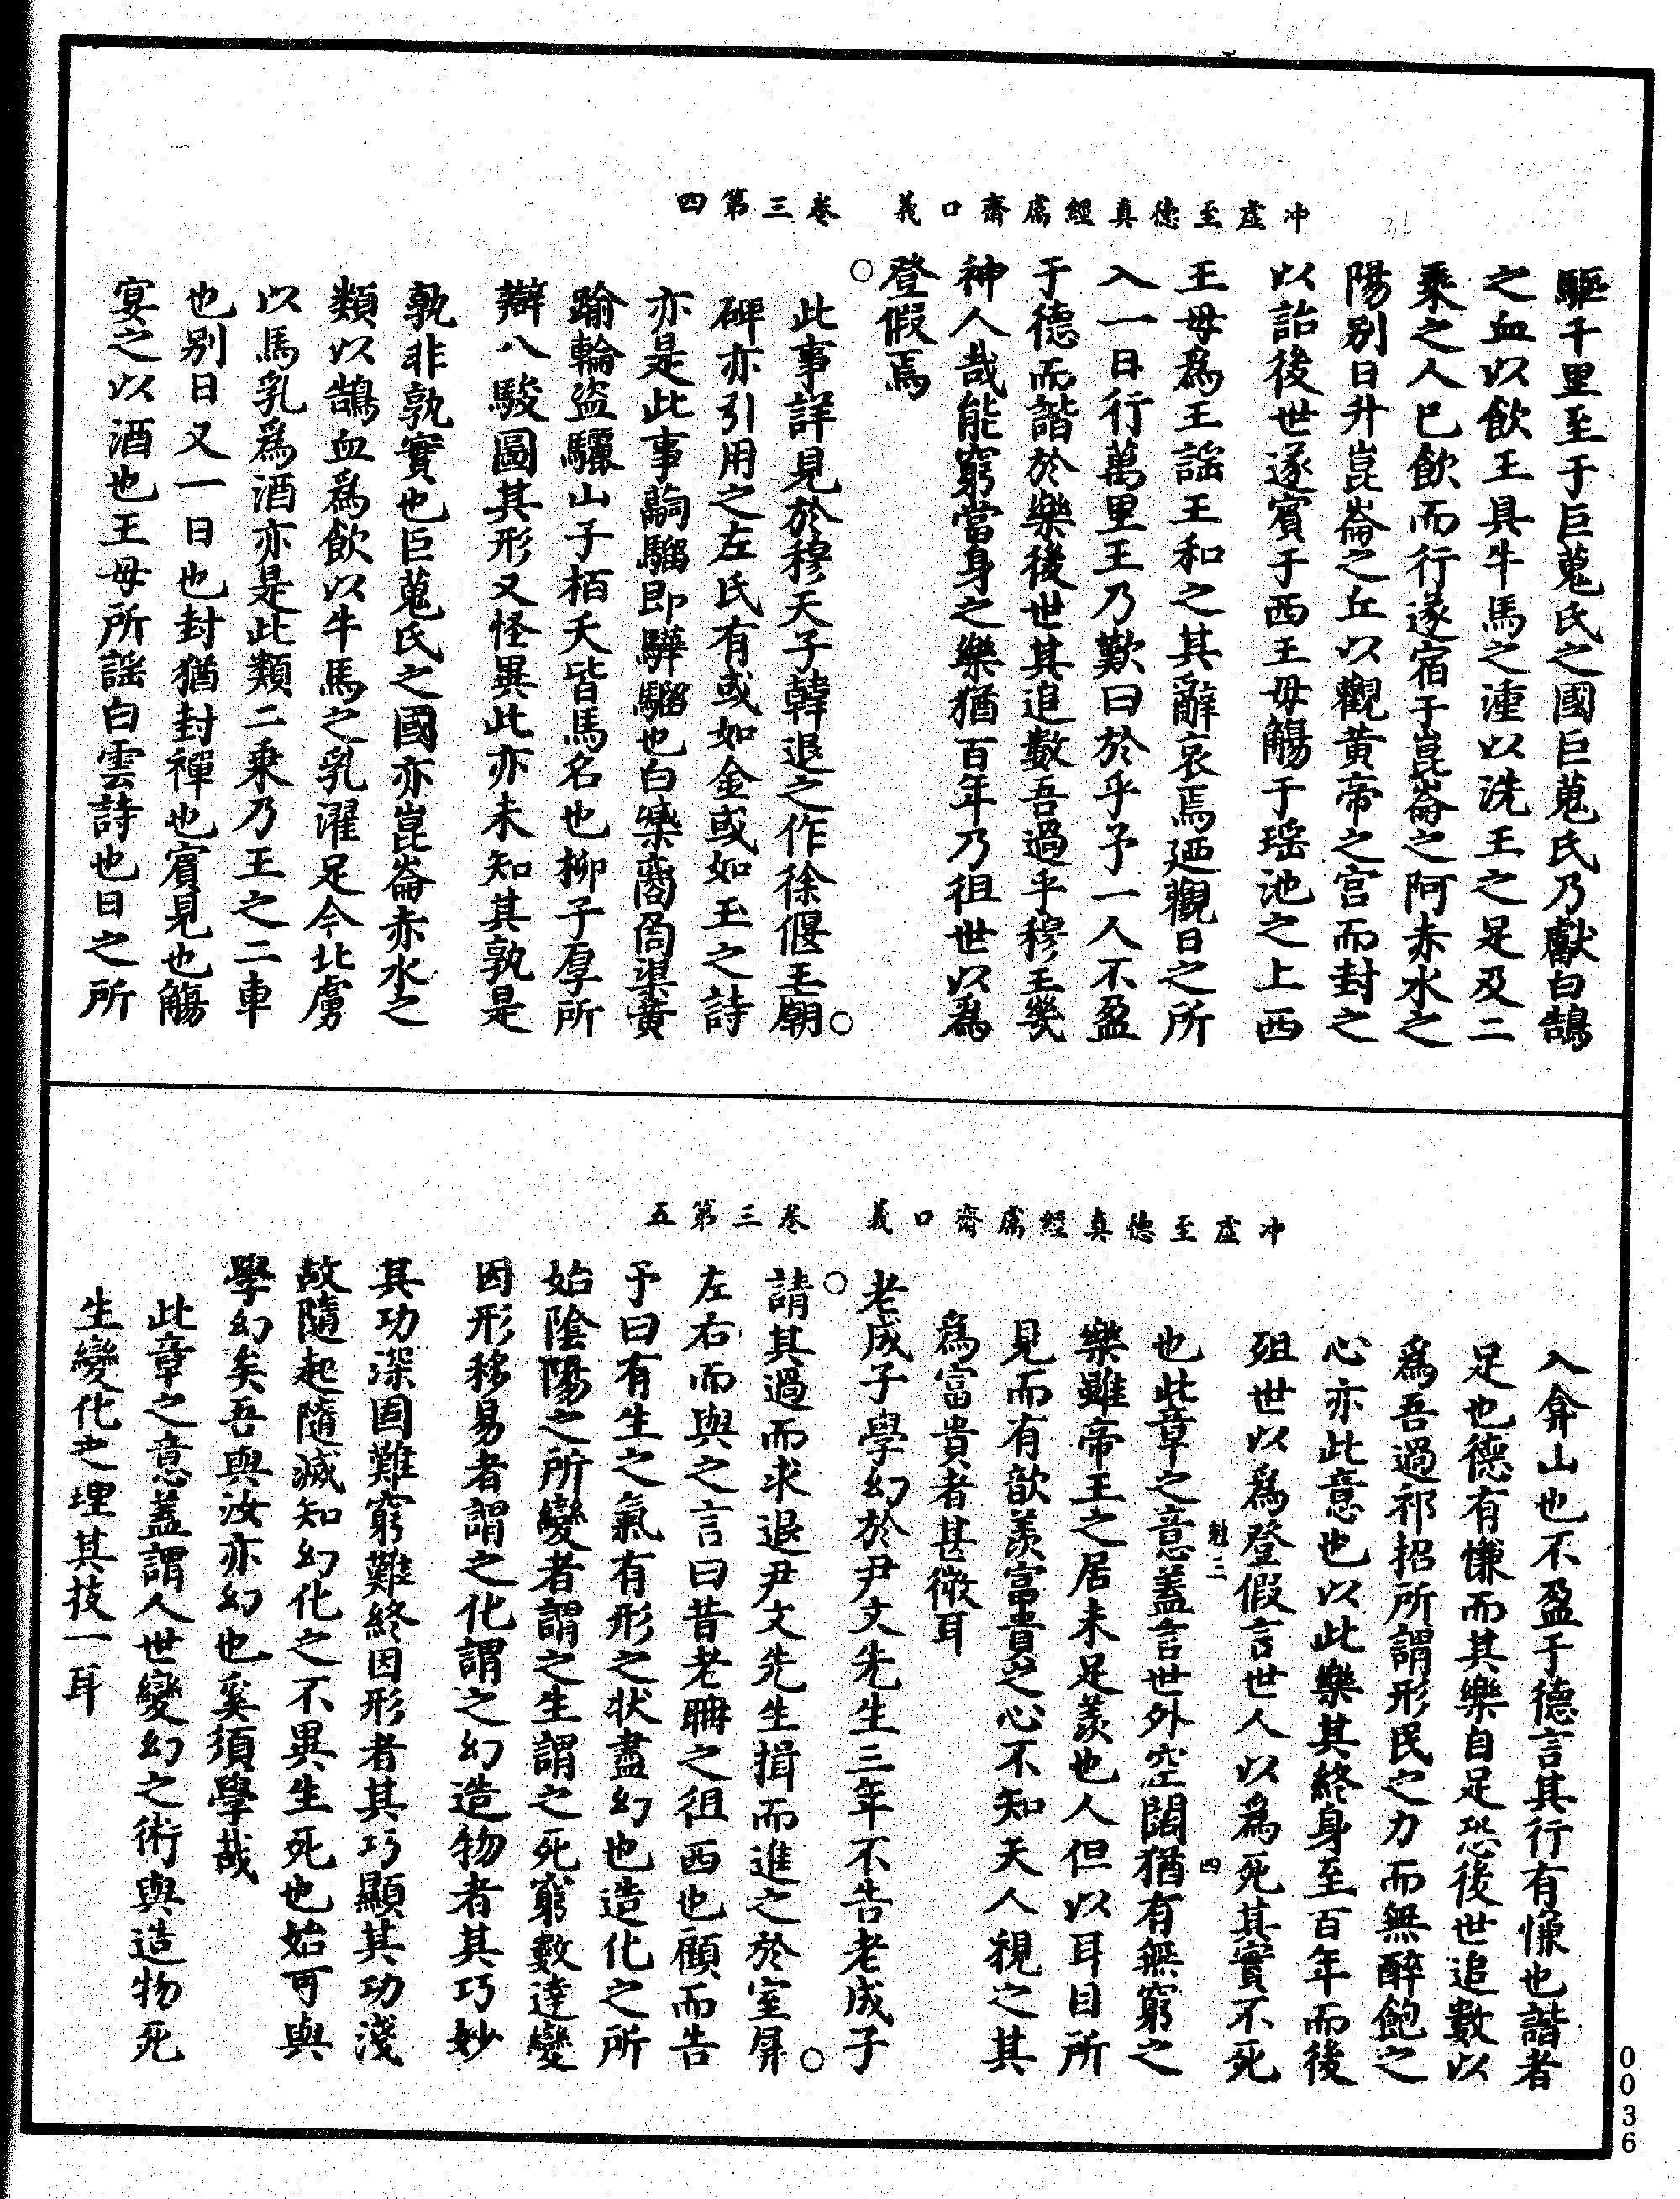 冲虛至德真經鬳齋口義　卷三第四
驅千里至于巨蒐氏之國巨蒐氏乃獻白鵠
之血以飲王具牛馬之湩以洗王之足及二
乘之人已飲而行遂宿于崑崙之阿赤水之
陽别日升崑崙之丘以觀黃帝之宫而封之
以詒後世遂賓于西王母觴于瑶池之上西
王母爲王謡王和之其辭哀焉廼觀日之所
入一日行萬里王乃歎曰於乎予一人不盈
于德而諧於樂後世其追數吾過乎穆王幾
神人哉能窮當身之樂猶百年乃徂世以爲
登假焉
此事詳見於穆天子韓退之作徐偃王廟
碑亦引用之左氏有或如金或如玉之詩
亦是此事䓇騮即驊騮也白𣝣𧯆𠱛渠黃
踰輪盗驪山子栢夭皆馬名也柳子厚所
辯八駿圖其形又怪異此亦未知其孰是
孰非孰實也巨蒐氏之國亦崑崙赤水之
類以鵠血爲飲以牛馬之乳濯足今北虜
以馬乳爲酒亦是此類二乘乃王之二車
也别日又一日也封猶封禪也賓見也觴
宴之以酒也王母所謡白雲詩也日之所
冲虛至德真經鬳齋口義　卷三第五
入弇山也不盈于德言其行有慊也諧者
足也德有慊而其樂自足恐後世追數以
爲吾過祁招所謂形民之力而無醉飽之
心亦此意也以此樂其終身至百年而後
殂世以爲登假言世人以爲死其實不死
魁三　四
也此章之意蓋言世外空闊猶有無窮之
樂雖帝王之居未足羨也人但以耳目所
見而有歆羨富貴之心不知天人視之其
爲富貴者甚微耳
老成子學幻於尹文先生三年不告老成子
請其過而求退尹文先生揖而進之於室屏
左右而與之言曰昔老聃之徂西也顧而告
予曰有生之氣有形之状盡幻也造化之所
始陰陽之所變者謂之生謂之死窮數達變
因形移易者謂之化謂之幻造物者其巧妙
其功深固難窮難終因形者其巧顯其功淺
故隨起隨滅知幻化之不異生死也始可與
學幻矣吾與汝亦幻也奚須學哉
此章之意蓋謂人世變幻之術與造物死
生變化之理其技一耳
0036